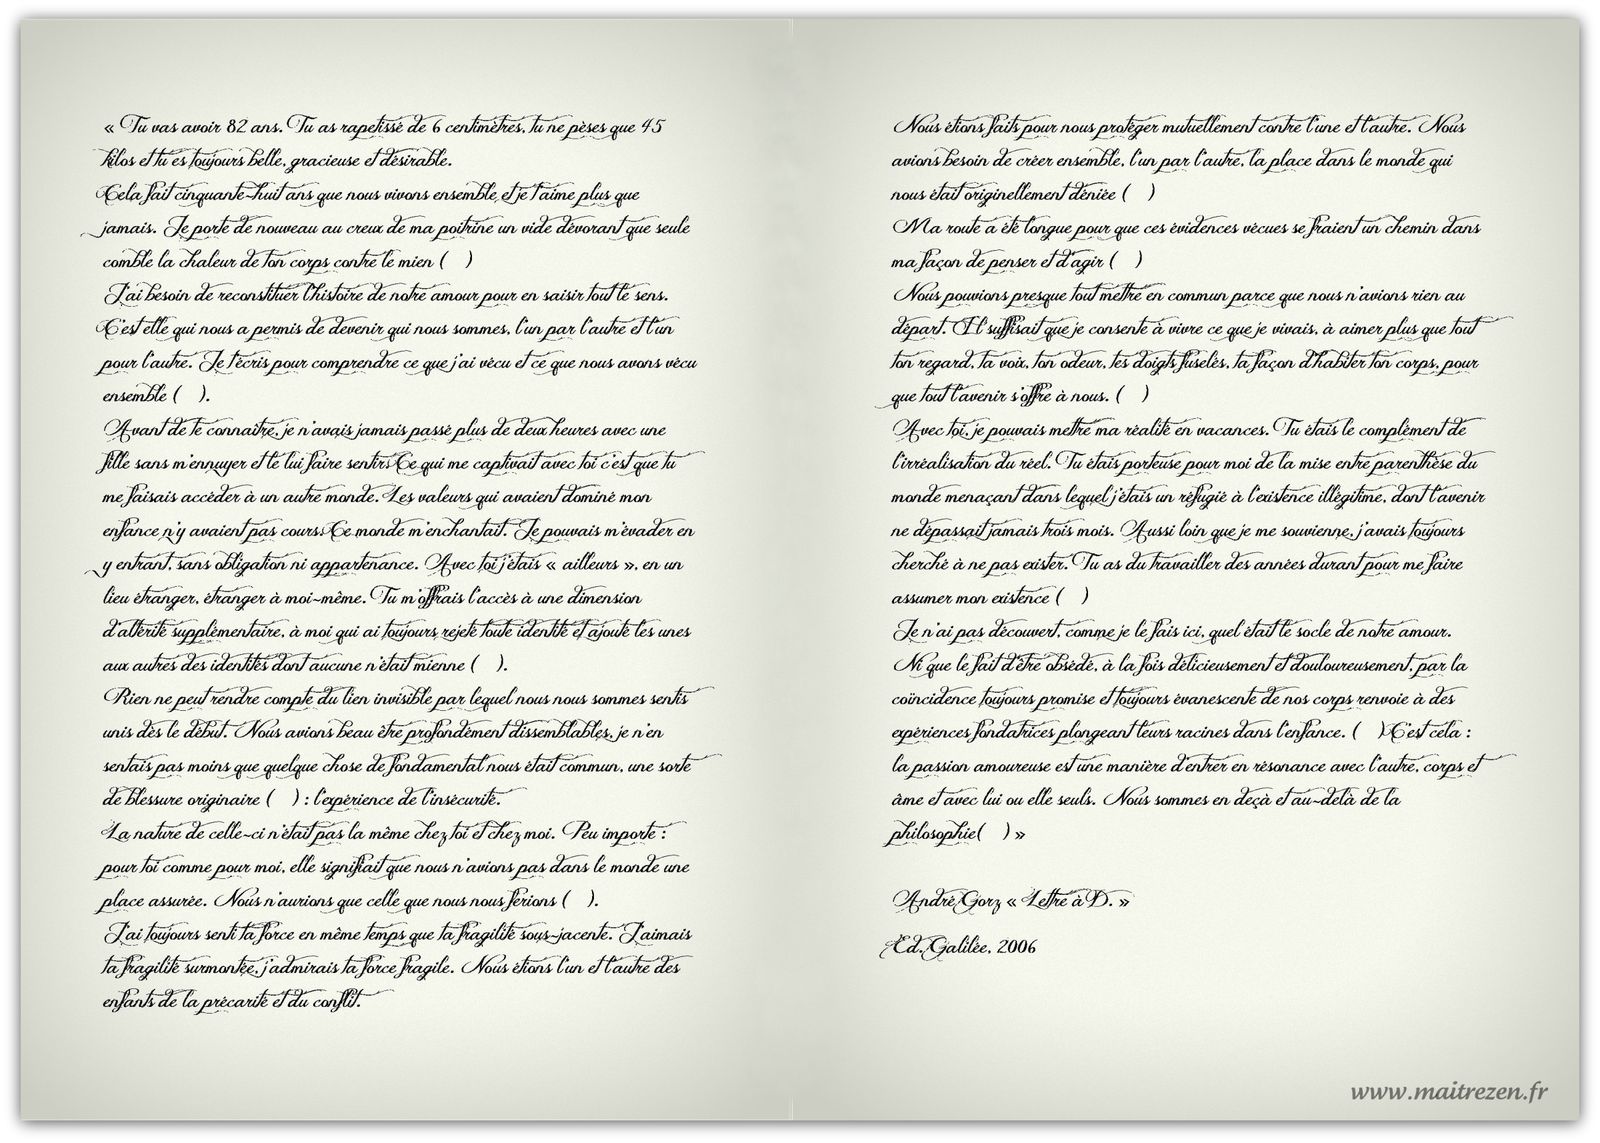 « Tu vas avoir 82 ans. Tu as rapetissé de 6 centimètres, tu ne pèses que 45
kilos et tu es toujours belle, gracieuse et désirable.
Cela fait cinquante-huit ans que nous vivons ensemble et je t'aime plus que
jamais. Je porte de nouveau au creux de ma poitrine un vide dévorant que seule
comble la chaleur de ton corps contre le mien ( )
J'ai besoin de reconstituer l'histoire de notre amour pour en saisir tout le sens.
C'est elle qui nous a permis de devenir qui nous sommes, l'un par l'autre et l'un
pour l'autre. Je t'écris pour comprendre ce que j'ai vécu et ce que nous avons vécu
ensemble ( ).
Avant de te connaître, je n'avais jamais passé plus de deux heures avec une
fille sans m'ennuyer et le lui faire sentir. Ce qui me captivait avec toi c'est que tu
me faisais accéder à un autre monde. Les valeurs qui avaient dominé mon
enfance n'y avaient pas cours. Ce monde m'enchantait. Je pouvais m'évader en
y entrant, sans obligation ni appartenance. Avec toi j'étais « ailleurs », en un
lieu étranger, étranger à moi-même. Tu m'offrais l'accès à une dimension
d'altérité supplémentaire, à moi qui ai toujours rejeté toute identité et ajouté les unes
aux autres des identités dont aucune n'était mienne ( ).
Rien ne peut rendre compte du lien invisible par lequel nous nous sommes sentis
unis dès le début. Nous avions beau être profondément dissemblables, je n'en
sentais pas moins que quelque chose de fondamental nous était commun, une sorte
de blessure originaire ( ) : l'expérience de l'insécurité.
La nature de celle-ci n'était pas la même chez toi et chez moi. Peu importe :
pour toi comme pour moi, elle signifiait que nous n'avions pas dans le monde une
place assurée. Nous n'aurions que celle que nous nous ferions ( ).
J'ai toujours senti ta force en même temps que ta fragilité sous-jacente. J'aimais
ta fragilité surmontée, j'admirais ta force fragile. Nous étions l'un et l'autre des
enfants de la précarité et du conflit.
Nous étions faits pour nous protéger mutuellement contre l'une et l'autre. Nous
avions besoin de créer ensemble, l'un par l'autre, la place dans le monde qui
nous était originellement déniée ( )
Ma route a été longue pour que ces évidences vécues se fraient un chemin dans
ma façon de penser et d'agir ( )
Nous pouvions presque tout mettre en commun parce que nous n'avions rien au
départ. Il suffisait que je consente à vivre ce que je vivais, à aimer plus que tout
ton regard, ta voix, ton odeur, tes doigts fuselés, ta façon d'habiter ton corps, pour
que tout l'avenir s'offre à nous. ( )
Avec toi, je pouvais mettre ma réalité en vacances. Tu étais le complément de
l'irréalisation du réel. Tu étais porteuse pour moi de la mise entre parenthèse du
monde menaçant dans lequel j'étais un réfugié à l'existence illégitime, dont l'avenir
ne dépassait jamais trois mois. Aussi loin que je me souvienne, j'avais toujours
cherché à ne pas exister. Tu as du travailler des années durant pour me faire
assumer mon existence ( )
Je n'ai pas découvert, comme je le fais ici, quel était le socle de notre amour.
Ni que le fait d'être obsédé, à la fois délicieusement et douloureusement, par la
coïncidence toujours promise et toujours évanescente de nos corps renvoie à des
expériences fondatrices plongeant leurs racines dans l'enfance. ( )C'est cela :
la passion amoureuse est une manière d'entrer en résonance avec l'autre, corps et
âme et avec lui ou elle seuls. Nous sommes en deçà et au-delà de la
philosophie( ) »
André Gorz « Lettre à D. »
Ed. Galilée, 2006
www.maitrezen.fr